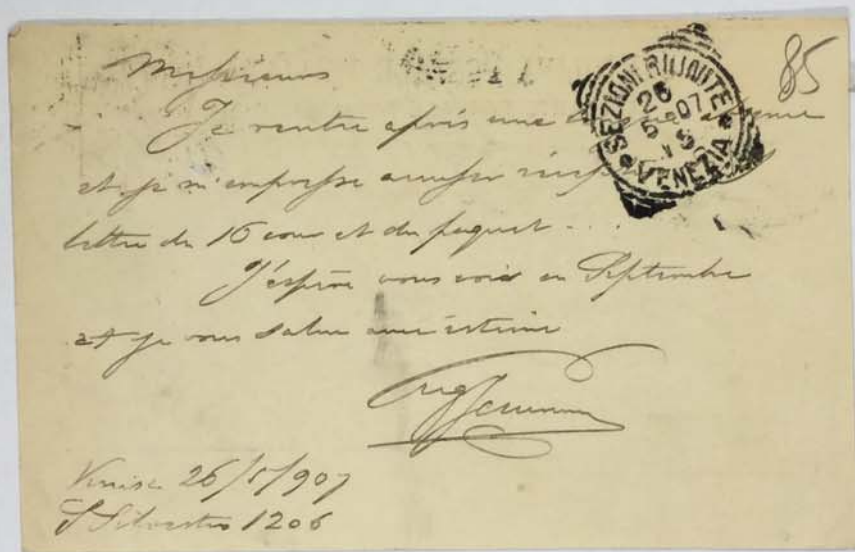 85
Messieurs
SEZIONI RIUNITE
26
5 07
15
VENEZIA
Je rentre après une
et je m'empresse
lettre du 16 cour et du paquet ...
J'espère vous voir en Septembre
et je vous salue avec estime
Venise 26/5/907
S Silvestro 1206